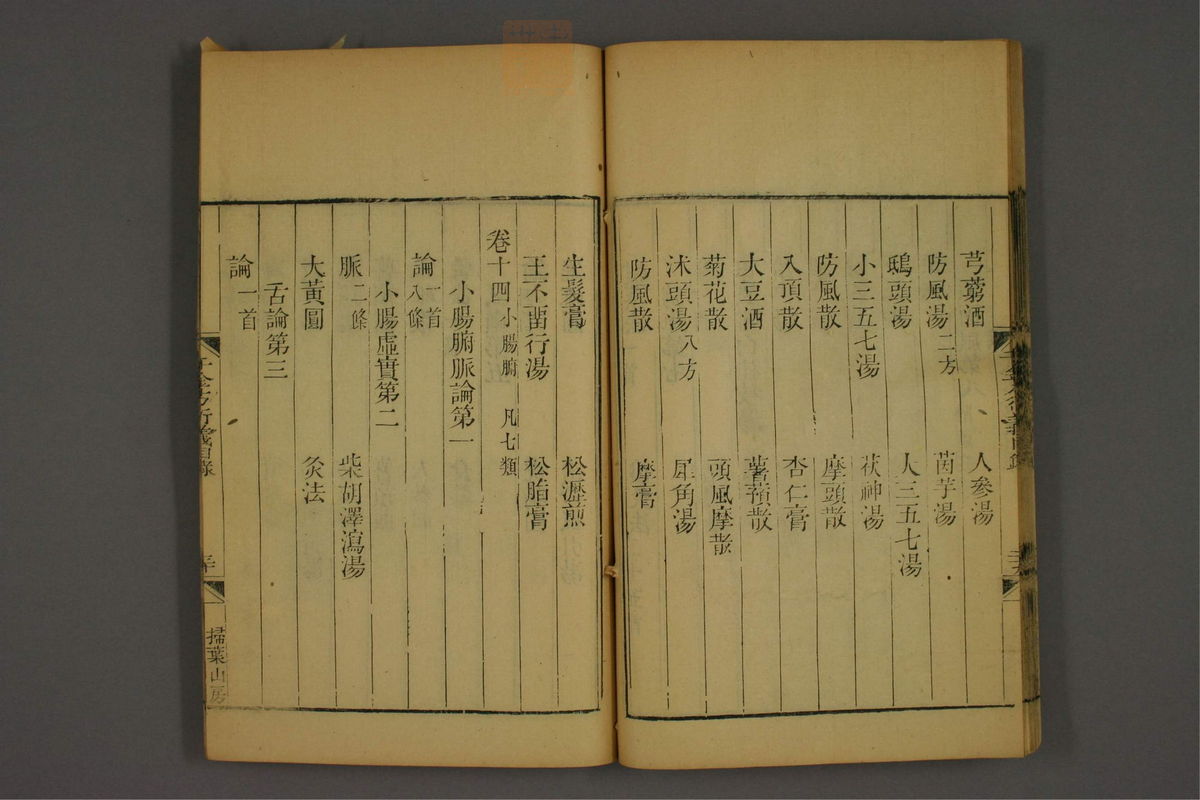 芎藭酒 人參湯
防風湯二方 茵芋湯
鴟頭湯 大三五七湯
小三五七湯 茯神湯
防風散 摩頭散
入頂散 杏仁膏
大豆酒 薯蕷散
菊花散 頭風摩散
沐頭湯八方 犀角湯
防風散 摩膏
生髮膏 松瀝煎
王不畱行湯 松脂膏
卷十四小腸腑 凡七類
小腸腑脈論第一
論一首八條
小腸虛實第二
脈二條 柴胡澤瀉湯
大黃圓 灸法
舌論第三
論一首
千金方衍義目錄
掃葉山房